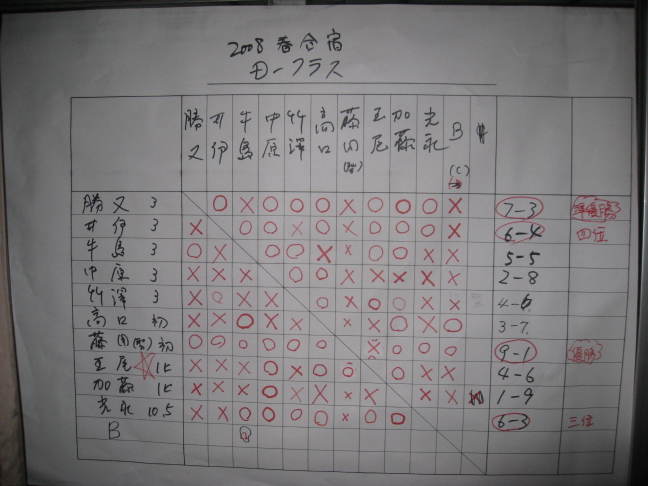 2008 春合宿
D-クラス
勝又 井伊 牛島 中原 竹澤 高口 藤田(聡) 玉尾 加藤 光永 B(C)
勝又 3 ○ × ○ ○ ○ × ○ ○ ○ × 7-3 準優勝
井伊 3 × ○ ○ × ○ × ○ ○ ○ × 6-4 四位
牛島 3 ○ × ○ ○ × × ○ ○ × × 5-5
中原 3 × × × ○ ○ × × × × × 2-8
竹澤 3 × ○ × × ○ × ○ ○ × × 4-6
高口 初 × × ○ × × × × ○ × ○ 3-7
藤田(聡) 初 ○ ○ ○ ○ ○ ○ × ○ ○ ○ 9-1 優勝
玉尾 1級 × × × ○ × ○ ○ ○ × × 4-6
加藤 1級 × × × ○ × × × × × × 1-9
光永 10.5 × × ○ ○ ○ ○ × ○ ○ 6-3 三位
B